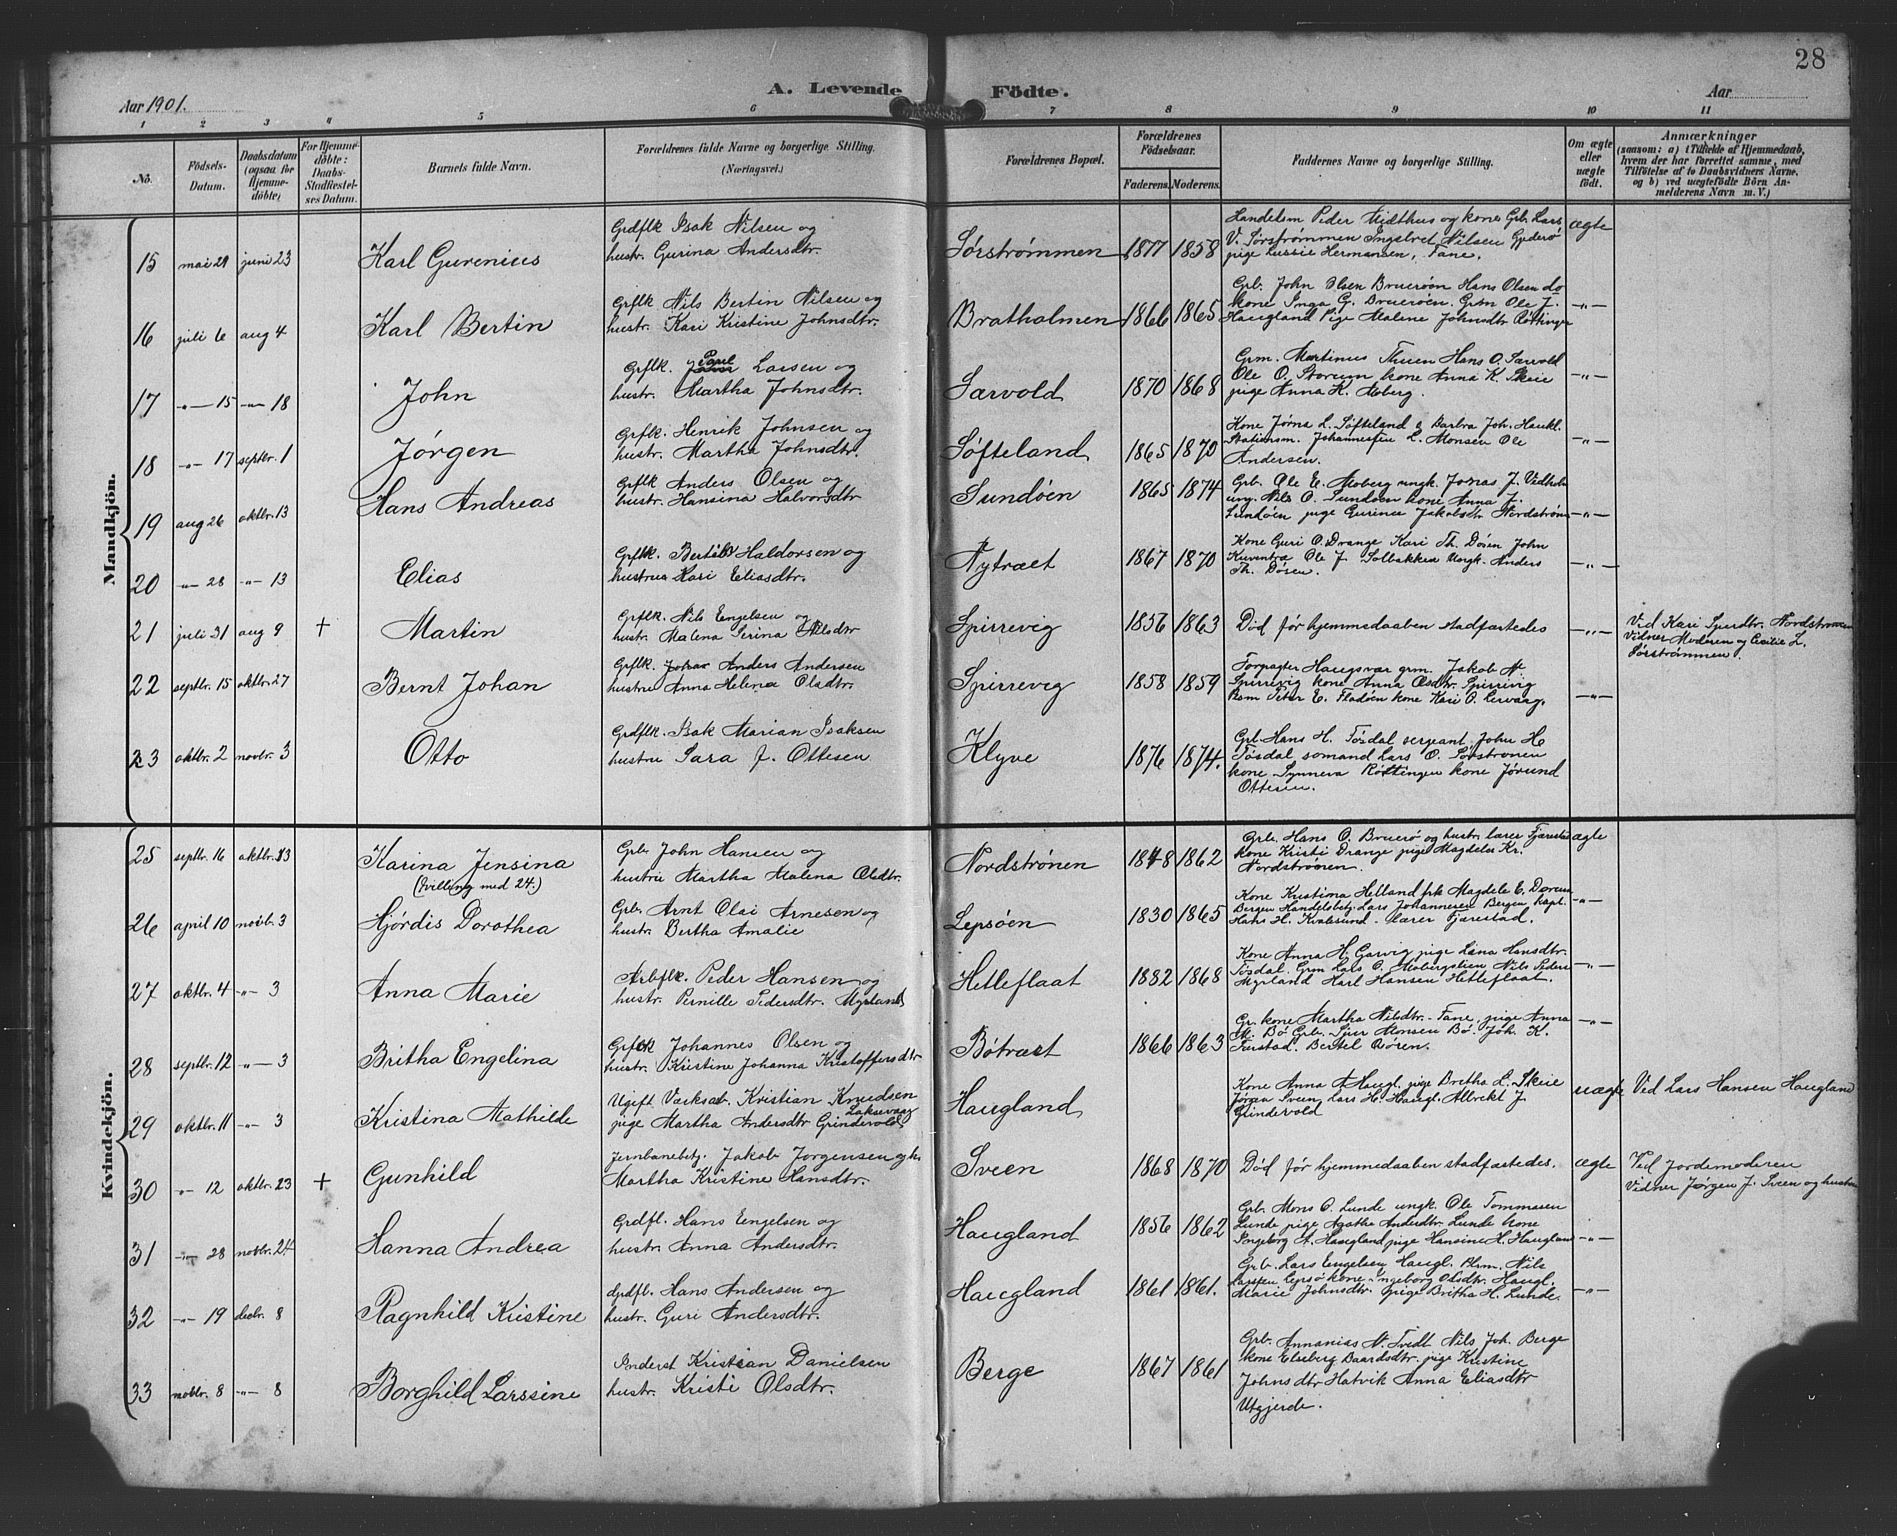 28
A. Levende Födte.
Aar 1901.
Aar
1 2 3 4 5 6 7 8 9 10 11
No.
Födsels-Datum.
Daabsdatum (ogsaa for Hjemmedöbte)
For Hjemmedöbte: Daabs-Stadfæstelses Datum.
Barnets fulde Navn.
Forældrenes fulde Navne og borgerlige Stilling.
(Næringsvei.)
Forældrenes Bopæl.
Forældrenes Födselsaar.
Faderens. Moderens.
Faddernes Navne og borgerlige Stilling.
Om ægte eller uægte födt.
Anmærkninger
(saasom: a) i Tilfælde af Hjemmedaab, hvem der har forrettet samme, med Tilföielse af to Daabsvidners Navne, og b) ved uægtefödte Börn Anmelderens Navn m. V.)
Mandkjön.
15 mai 29 juni 23 Karl Gurenius
Grdflk Isak Nilsen og
hustr. Gurina Andersdtr.
Sørstrømmen 1877 1858
Handelsm Peder Midthus og kone Grb. Lars
V. Sørstrømmen Ingebret Nilsen
pige Lussie Hermansen, Fane.
ægte
16 juli 6 aug 4 Karl Bertin
Grflk Nils Bertin Nilsen og
hustr. Kari Kristine Johnsdtr.
Bratholmen 1866 1865
Grb. John Olsen Bruerøen Hans Olsen do
kone Inga G. Bruerøen. Grbm Ole J.
Haugland Pige Malene Johnsdtr Røttingen
-"-
17 -"- 15 -"- 18 John
Grflk. Paul Larsen og
hustr. Martha Johnsdtr.
Særvold 1870 1868
Grm. Martinus Thuen Hans O. Særvold
Ole O. Storum kone Anna K. Skeie
pige Anna K. Moberg.
-"-
18 -"- 17 septbr. 1 Jørgen
Grflk. Henrik Johnsen og
hustr. Martha Johnsdtr.
Søfteland 1865 1870
Kone Jørna L. Søfteland & Barbra Joh. Haukl.
Stationsm. L. Monsen Ole
Andersen.
-"-
19 aug 26 oktbr. 13 Hans Andreas
Grflk Anders Olsen og
hustr. Hansina Halvorsdtr
Sundøen 1865 1874
Grb. Ole E. Moberg ungk. Jonas J.
ung. Nils O. Sundøen kone Anna J.
Sundøen pige Gurine Jakobsdtr Nordstrøm
-"-
20 -"- 28 -"- 13 Elias
Grflk. Haldorsen og
hustrue Kari Eliasdtr.
Nytræet 1867 1870
Kone Guri O. Drange Kari Th. Døsen John
Kuventræ Ole J. Solbakken Ungk. Anders
Th. Døsen.
-"-
21 juli 31 aug 9 + Martin
Grflk. Nils Engelsen og
hustr. Malena Serina Nilsdtr
Spirrevig 1856 1863
Död før hjemmedaaben stadfæstedes
-"-
Ved Kari Nordstrømen
Vidner Moderen og Cecilie L.
Sørstrømmen.
22 septbr. 15 oktbr. 27 Bernt Johan
Grflk. Anders Andersen
hustrue Anna Helena Olsdtr.
Spirreveg 1858 1859
Forpagter Haugsvær grm. Jakob N
Spirrevig kone Anna Olsdtr. Spirrevig
Peter E. Fladøen kone Kari O. Lervaag.
-"-
23 oktbr. 2 novbr. 3 Otto
Grdflk. Isak Marian Isaksen
hustru Sara J. Ottesen
Klyve 1876 1874.
Grb. Hans H. Tøsdal sergeant John H
Tøsdal somand Lars O. Sørstrønen
kone Synneva Røttingen kone Jørund
Ottesen.
Kvindekjön.
25 septbr. 16 oktbr. 13 Karina Jensina
(Tvilling med 24.)
Grb. John Hansen og
hustrue Martha Malena Olsdtr.
Nordstrønen 1848 1862
Grb. Hans O. Bruerø og hustr. lærer Fjærestad
kone Kristi Drange pige Magdela Kr.
Nordstrønen.
ægte
26 april 10 novb. 3 Hjørdis Dorothea
Grb. Arnt Olai Arnesen og
hustr. Bertha Amalie
Lepsøen 1830 1865
Kone Kristina Helland frk Magdele E.
Bergen Handelsbetj. Lars Johannesen Bergen Kapt.
Hans H. Kvalsund - lærer Fjærestad.
-"-
27 oktbr. 4 -"- 3 Anna Marie
Arbflk. Peder Hansen og
hustr. Pernille Pedersdtr. Myrland
Hetleflaat 1882 1868
Kone Anna H. Gaasvig pige Lina Hansdtr.
Tøsdal. Grm Lars O. Mobergslien Nils Peders
Myrland Karl Hansen Hetleflaat.
-"-
28 septbr. 12 -"- 3 Britha Engelina
Johannes Olsen og
hustr. Kristine Johanna Kristoffersdtr
Bøtræet 1866 1863
Gr. kone Martha Nilsdtr. Fane, pige Anna
M. Bø Grb. Sjur Monsen Bø. Joh. K.
Bertel
-"-
29 oktbr. 11 -"- 3 Kristina Mathilde
Ugift Værksarb. Kristian Knudsen
Laksevaag
pige Martha Andersdtr Grindevold
Haugland
Kone Anna A Haugl. pige Britha L. Skeie
Jørgen Sveen Lars H. Haugl. Albrekt J.
Grindevold
uægte
Ved Lars Hansen Haugland
30 -"- 12 oktbr. 23 + Gunhild
Jernbanebetj. Jakob Jørgensen og h.
Martha Kristine Hansdtr.
Sveen 1868 1870
Død før hjemmedaaben stadfæstedes.
ægte
Ved Jordemoderen
Vidner Jørgen J. Sveen og hustru
31 -"- 28 novbr. 24 Hanna Andrea
Grdfl. Hans Engelsen og
hustr. Anna Andersdtr.
Haugland 1856 1862
Grb. Mons O. Lunde ungk. Ole Tommasen
Lunde pige Agatha Andersdtr. Lunde kone
Ingeborg A. Haugland pige Hansine H. Haugland
-"-
32 -"- 19 decbr. 8 Ragnhild Kristine
Grdfl. Hans Andersen og
hustr. Guri Andersdtr.
Haugland 1861 1861.
Grb. Lars Engelsen Haugl. Nils
Larsen Lepsø kone Ingeborg Olsdtr. Haugl.
Marie Johnsdtr. pige Britha H. Lunde.
-"-
33 novbr. 8 -"- 8 Borghild Larssine
Inderst Kristian Danielsen
hustr. Kristi Olsdtr.
Berge 1867 1861
Grb. Annanias N. Tvedt Nils Joh. Berge
kone Elseberg Baardsdtr. pige Kristine
Johnsdtr Hatvik Anna Eliasdtr
Utgjerde.